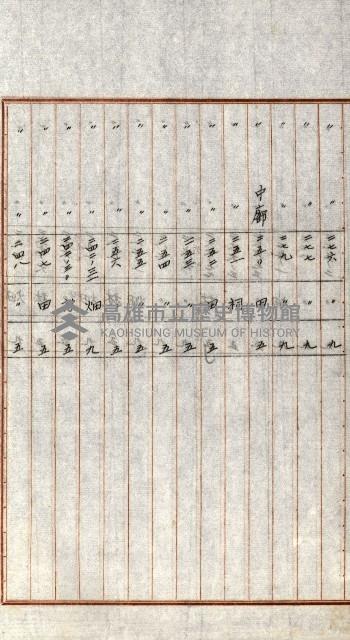 〃 〃 二七六 〃 九
〃 〃 二七七 〃 九
〃 〃 二七九 〃 九
〃 中廍 二五〇 田 五
〃 〃 二五一 祠
〃 〃 二五二 田 五
〃 〃 二五三 〃 五
〃 〃 二五四 〃 五
〃 〃 二五五 〃 五
〃 〃 二五六 〃 五
〃 〃 二四二ノ三 畑 九
〃 〃 〃 五
〃 〃 二四七 田 五
〃 〃 二四八 〃 五
高雄市立歷史博物館
KAOHSIUNG MUSEUM OF HISTORY